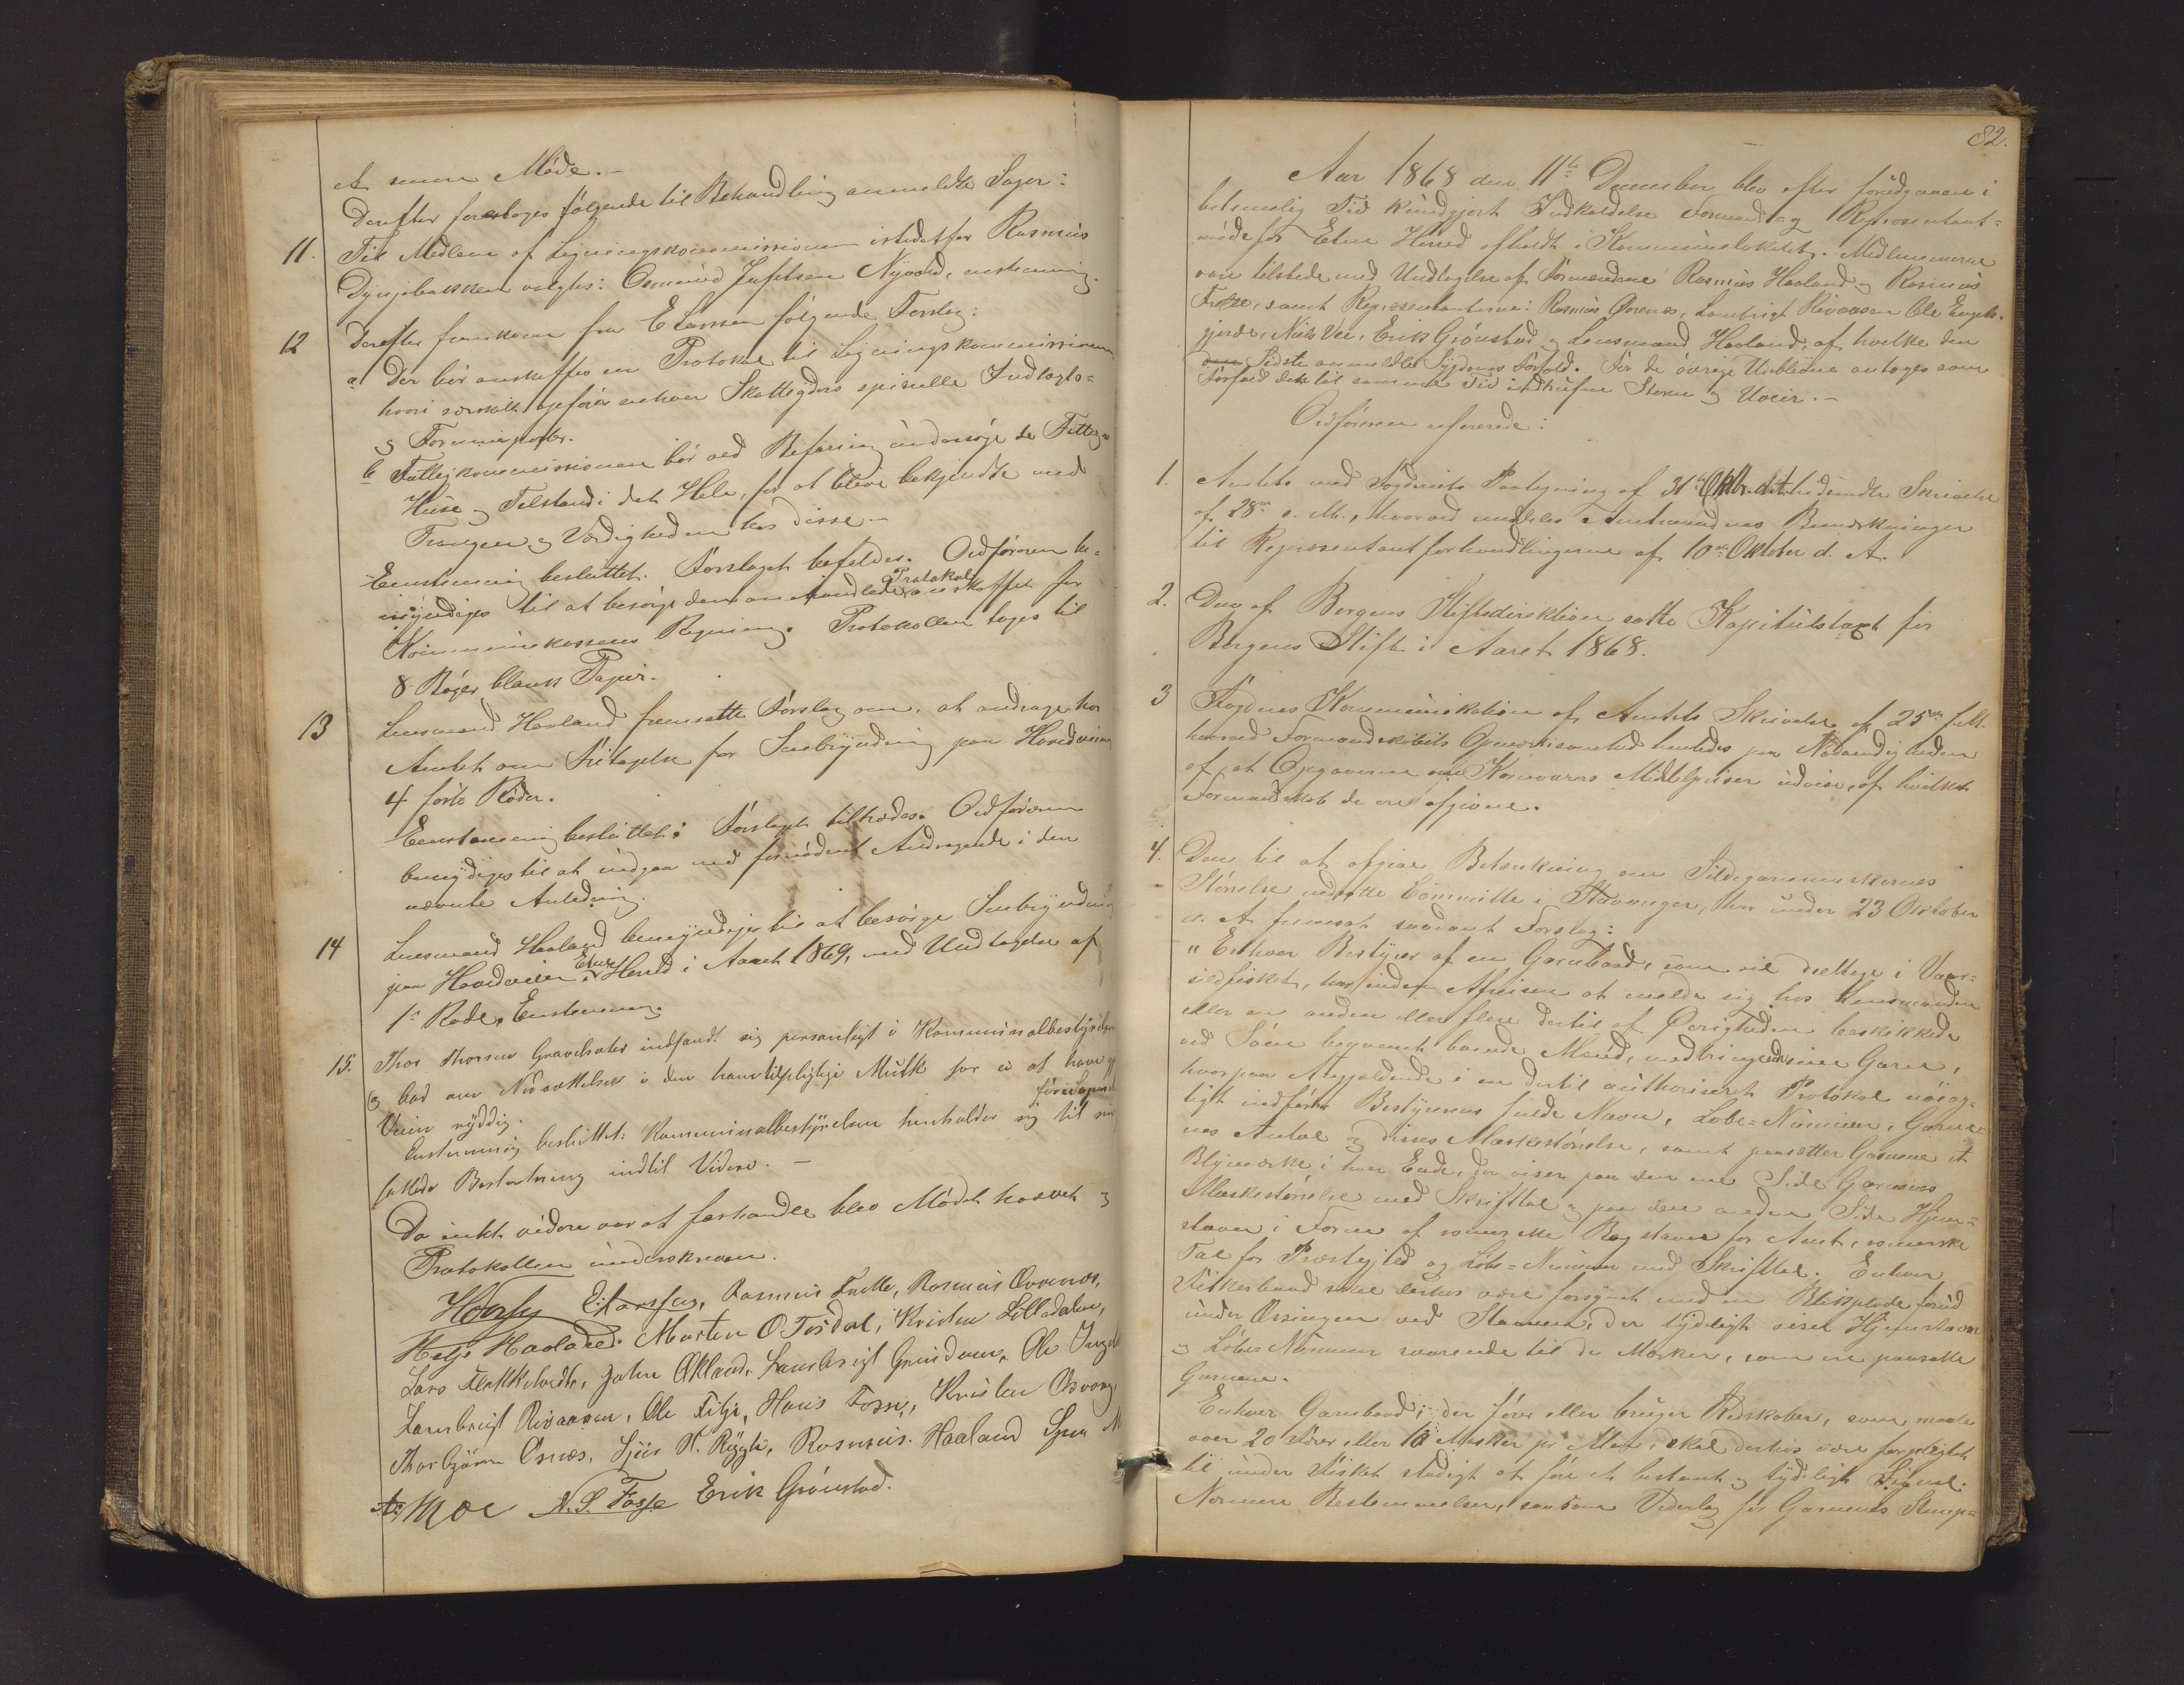 et senere Møde. –
Derefter foretoges følgende til Behandling anmeldte Sager:
11. Til Medlem af Ligningskommissionen istedetfor Rasmus
Dyngebakken valgtes: Osmund Nyvold, enstemmig.
12 Derefter fremkom fra E Larssen følgende Forslag:
a Der bør anskaffes en Protokol til Ligningskommissionen
hvori særskilt opføres enhver Skatteyders specielle Indtægts=
og Formueposter.
b Fattigkommissionen bør ved Befaring undersøge de Fattiges
Huse og Tilstand i det Hele, for at blive bekjendte med
Trangen og Værdigheden hos disse. –
Eenstemmig besluttet: Forslaget bifaldes. Ordføreren be=
myndiges til at besørge den omhandlede Protokol anskaffet for
Kommunekassens Regning. Protokollen tages til
8 Bøger blank Papir.
13 Lensmand Haaland fremsatte Forslag om, at andrage hos
Amtet om Fritagelse for Snebrydning paa Hovedveien
4 første Roder.
Eenstemmig besluttet: Forslaget tiltrædes. Ordføreren
bemyndiges til at indgaa med fornødent Andragende i den
nævnte Anledning.
14 Lensmand Haaland bemyndiges til at besørge Snebrydning
paa Hovedveien i Etne Herred i Aaret 1869, med Undtagelse af
1ste Rode. Enstemmig.
15. Thor Thorsen Gravelsæter indfandt sig personligt i Kommunalbestyrelsen
og bad om Nedsættelse i den ham tilpligtige Mulkt for ei at have
Veien ryddig.
Enstemmig besluttet: Kommunalbestyrelsen henholder sig til sin foreløpen
fattede Beslutning indtil Videre. –
Da intet videre var at forhandle blev Mødet hævet og
Protokollen underskreven.
E. Larssen, Rasmus Frette, Rasmus Ørrenæs,
Helje Haaland. Morten O Tesdal, Kristen Lilledalen,
Lars Flokketvedt, John Økland, Lambrigt Grindem, Ole
Lambrigt Rivaasen, Ole Fitje, Hans Fosse, Kristen Osvaag
Thorbjørn Osnæs, Sjur N. Rygg, Rasmus Haaland Sjur M
A: Moe N. S. Fosse Erik Grønstad.
82.
Aar 1868 den 11te December blev efter foregaaende i
betimelig Tid kundgjort Indkaldelse Formands= og Repræsentant=
møde for Etne Herred afholdt i Kommunelokalet. Medlemmerne
vare tilstede med Undtagelse af Formændene Rasmus Haaland og Rasmus
Frette, samt Repræsentanterne: Rasmus Ørrenæs, Lambrigt Rivaasen Ole Engels=
gjerde, Niels Vee, Erik Grønstad og Lensmand Haaland, af hvilke den
Sidste anmeldte Sygdoms Forfald. For de øvrige Udeblevne antoges som
Forfald den til samme Tid indtrufne Storm og Uveir. –
Ordføreren refererede:
1. Amtets med Fogderiets Paategning af 31te Oktbr. d. A. tilsendte Skrivelse
af 28de s. M., hvorved meddeles Amtmandens Bemærkninger
til Repræsentantforhandlingerne af 10de Oktober d. A.
2. Den af Bergens Stiftsdirektion satte Kapitulstaxt for
Bergens Stift i Aaret 1868.
3 Fogdens Kommunikation af Amtets Skrivelse af 25de
hvorved Formandskabets Opmærksomhed henledes paa Nødvendigheden
af, at Opgaverne over Kornvarers Middelpriser udvise, af hvilket
Formandskab de ere afgivne.
4. Den til at afgive Betænkning om Sildegarnmaskernes
Størrelse nedsatte Committe i Stavanger, har under 23 Oktober
d. A fremsat saadant Forslag:
„Enhver Bestyrer af en Garnbaad, som vil deeltage i Vaar=
sildfisket, har inden Afreisen at melde sig hos Lensmanden
eller en anden eller flere dertil af Øvrigheden beskikkede
ved Søen beqvemt boende Mænd, medbringende sine Garn,
hvorpaa Angjældende i en dertil authoriseret Protokol nøiag=
tigt indfører Bestyrerens fulde Navn, Løbe=Nummer, Garne=
nes Antal og disses Maskestørrelse, samt paasætter Garnene et
Blymærke i hver Ende, der viser paa den ene Side Garnenes
Maskestørrelse med Skrifttal og paa den anden Side Hjem=
stavn i Form af romerske Bogstaver for Amt, romerske
Tal for Præstegjeld og Løbe=Nummer med Skrifttal. Enhver
Fiskerbaad skal derhos være forsynet med en Blikplade forud
under Æsingen ved Stavnen, der tydeligt viser Hjemstavn
og Løbe=Nummer svarende til de Mærker, som ere paasatte
Garnene.
Enhver Garnbaad, der fører eller bruger Redskaber, som maale
over 20 Omfar eller 10 Masker pr Alen, skal derhos være forpligtet
til under Fisket stadigt at føre et bestemt og tydeligt Signal.
Nærmere Bestemmelser, saasom Vederlag for Garnenes Stemp=